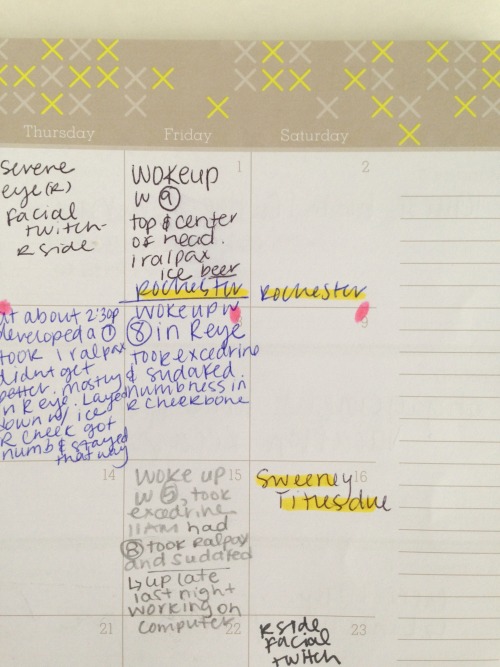 Thursday
Friday
Saturday
serene
eye (R)
facial
twitch-
R side
1
Wokeup
w 9
top & center
of head.
1 ralpax
ice beer
Rochester
2
Rochester
at about 2:30p
developed a 7
took 1 ralpax
didnt get
better. mostly
in R eye. Layed
down w/ ice
R cheek got
numb & stayed
that way
8
wokeup w
8 in R eye
took excedrine
& sudafed.
numbness in
R cheekbone
9
14
15
Woke up
w 5, took
excedrine
11AM had
8 took ralpax
and sudafed
↳ up late
last night
working on
computer
16
Sweeney
Titles due
21
22
23
R side
facial
twitch